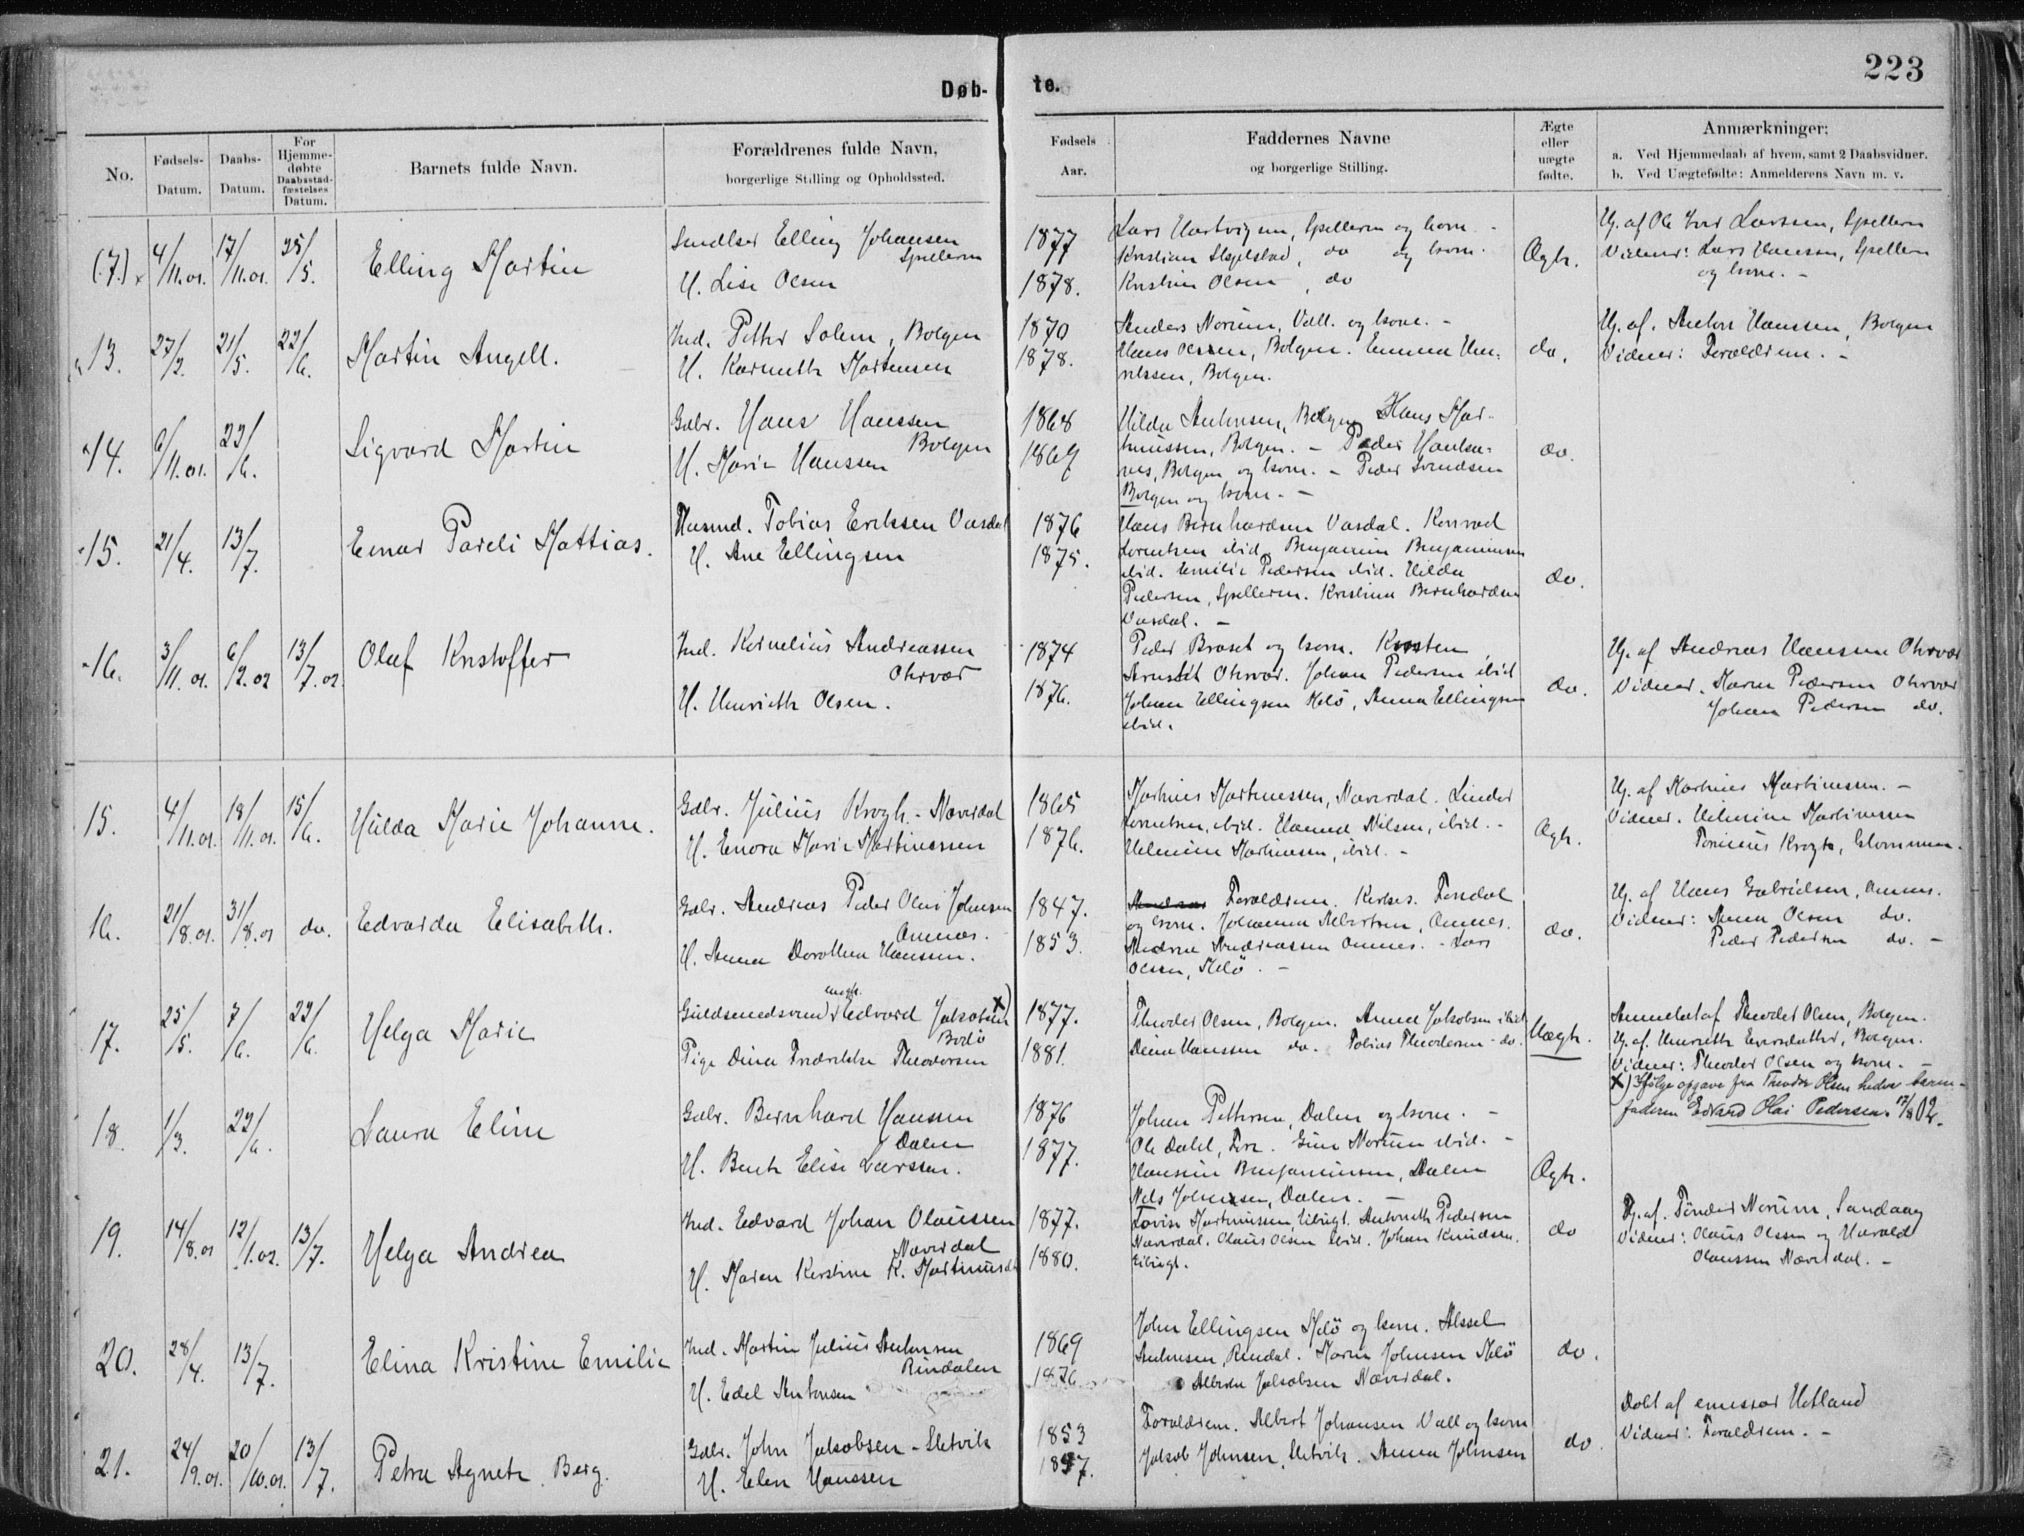 223
Døb-
te.
No.
Fødsels-
Datum.
Daabs-
Datum.
For
Hjemme-
døbte
Daabsstad-
fæstelses
Datum.
Barnets fulde Navn.
Forældrenes fulde Navn,
borgerlige Stilling og Opholdssted.
Fødsels
Aar.
Faddernes Navne
og borgerlige Stilling.
Ægte
eller
uægte
fødte.
Anmærkninger:
a. Ved Hjemmedaab af hvem, samt 2 Daabsvidner.
b. Ved Uægtefødte: Anmelderens Navn m. v.
(7.) 4/11.01. 17/11.01. 25/5. Elling Martin
Elling Johansen
Spelleren
H. Lise Olsen
1877
1878.
Lars Hartvigsen, Spelleren og kone. -
Kristian, do og kone.
Kristine Olsen, do
Ægte.
Hj. af Ole Larssen, Spelleren
Vidner: Lars Hanssen, Spelleren
og kone. -
13. 27/2. 21/5. 22/6. Martin Angell.
Ind. Petter Solem, Bolgen
H. Karneth Mortensen
1870
1878.
Anders Norum, Vall. og kone. -
Hans Olssen, Bolgen. Emma Hen-
rikssen, Bolgen.
do.
Hj. af. Anton Hanssen, Bolgen
Vidner: Forældrene. -
14. 6/11.01. 22/6. Sigvard Martin
Gbr. Hans Hanssen
Bolgen
H. Marie Hanssen
1868
1869
Hilda Antonsen, Bolgen Hans Mar-
tinussen, Bolgen. - Peder
Bolgen og kone. - Peder Svendsen
Bolgen og kone. -
do.
15. 21/4. 13/7. Einar Pareli Mattias.
Husmd. Tobias Eriksen Vasdal
H. Ane Ellingsen
1876
1875.
Hans Bernhardsen Vasdal. Konrad
Lorentsen ibid. Benjamin Benjaminsen
ibid. Emilie Pedersen ibid. Hilda
Pedersen, Spelleren. Kristine Bernhardsen
Vasdal. -
do.
16. 3/11.01. 6/2.02 13/7.02. Olaf Kristoffer
Ind. Kornelius Andreassen
Otervær
H. Henriette Olsen.
1874
1876.
Peder Braset og kone. Karsten
Arnsdt Otervær. Johan Pedersen ibid
Johan Ellingsen Melö, Anna Ellingsen
ibid.
do.
Hj. af Andreas Hansen Otervær
Vidner. Karen Pedersen Otervær
Johan Pedersen do.
15. 4/11.01. 18/11.01. 15/6. Hilda Marie Johanne.
Gbr. Julius Krogh. - Næverdal
H. Enora Marie Martinussen
1865
1876.
Martinus Martinussen, Næverdal. Linder
Lorentsen, ibid. Hanna Nilsen, ibid. -
Helmine Martinusen, ibid. -
Ægte.
Hj. af Martinus Martinussen. -
Vidner. Helmine Martinussen
Krogh, Glommen.
16. 21/8.01. 31/8.01 do. Edvarda Elisabeth.
Gbr. Andreas Peder Olai Johnsen
Omnes.
H. Anna Dorothea Hanssen.
1847.
1853.
Forældrene. Fondal
og kone. Johanna Albertsen, Omnes.
Andrea Andreassen Omnes. - Lars
Olssen, Melö. -
do.
Hj. af Hans Gabrielsen, Omnes.
Vidner: Anna Olsen do.
Peder Pedersen do. -
17. 25/5. 7/6. 22/6. Helga Marie
Guldsmedsvend ungk. Edvard Jakobsen x)
Bodö
Pige Dina Fredrikke Theodorsen
1877.
1881.
Theodor Olsen, Bolgen. Anna Jakobsen ibid
Dina Hanssen do. Tobias Theodorsen - do.
Uægte.
Anmeldt af Theodor Olsen, Bolgen.
Hj. af Henriette Eversdatter, Bolgen.
Vidner: Theodor Olsen og kone. -
x) Ifølge opgave fra Theodor Olsen heder barne-
faderen Edvard Olai Pedersen. 17/8 02.
18. 1/3. 22/6. Laura Eline
Gbr. Bernhard Hansen
Dalen
H. Berit Elise Larssen.
1876
1877.
Johan Pettersen, Dalen og kone. -
Ole Dahl, Fore. Norum ibid. -
Hansine Benjaminsen, Dalen
Nils Johnsen, Dalen. -
Ægte.
19. 14/8.01 12/1.02. 13/7. Helga Andrea
Ind. Edvard Johan Olaussen
Næverdal
H. Maren Kirstine K. Martinusdt
1877.
1880.
Lovise Martinussen Eilvigt. Antoneth Pedersen
Næverdal. Olaus Olsen ibid. Johan Knudsen.
Eilvigt.
do
Hj. af. Norum, Sandaag
Vidner: Olaus Olssen og Harald
Olaussen Næverdal. -
20. 28/4. 13/7. Elina Kristine Emilie
Ind. Martin Julius Antonsen
Rindalen
H. Edel Antonsen
1869
1876
John Ellingsen Melö og kone. Aksel
Antonsen, Rendal. Karen Johnsen Melö
Alberta Jakobsen Næverdal.
do.
21. 24/9.01. 20/10.01. 13/7. Petra Agnete Berg.
Gbr. John Jakobsen - Sletvik
H. Elen Hanssen
1853
1857.
Forældrene. Albert Johansen Vall og kone
Jakob Johnsen, Sletvik. Anna Johnsen
do.
Døbt af emissær Hetland
Vidner: Forældrene. -